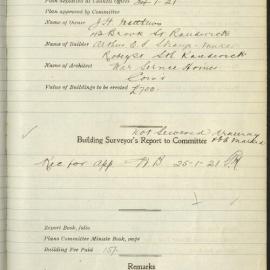 Plan submitted at Council Office 20-1-21
Plan approved by Committee
Name of Owner J. H. Matthews
Brook St Randwick
Name of Builder Arthur E.
Sth Randwick
Name of Architect War Service Homes
Com's
Value of Buildings to be erected £700
not sewered
Building Surveyor's Report to Committee
Rec for app 25-1-21
Report Book, folio
Plans Committee Minute Book, page
Building Fee Paid 15/-
Remarks